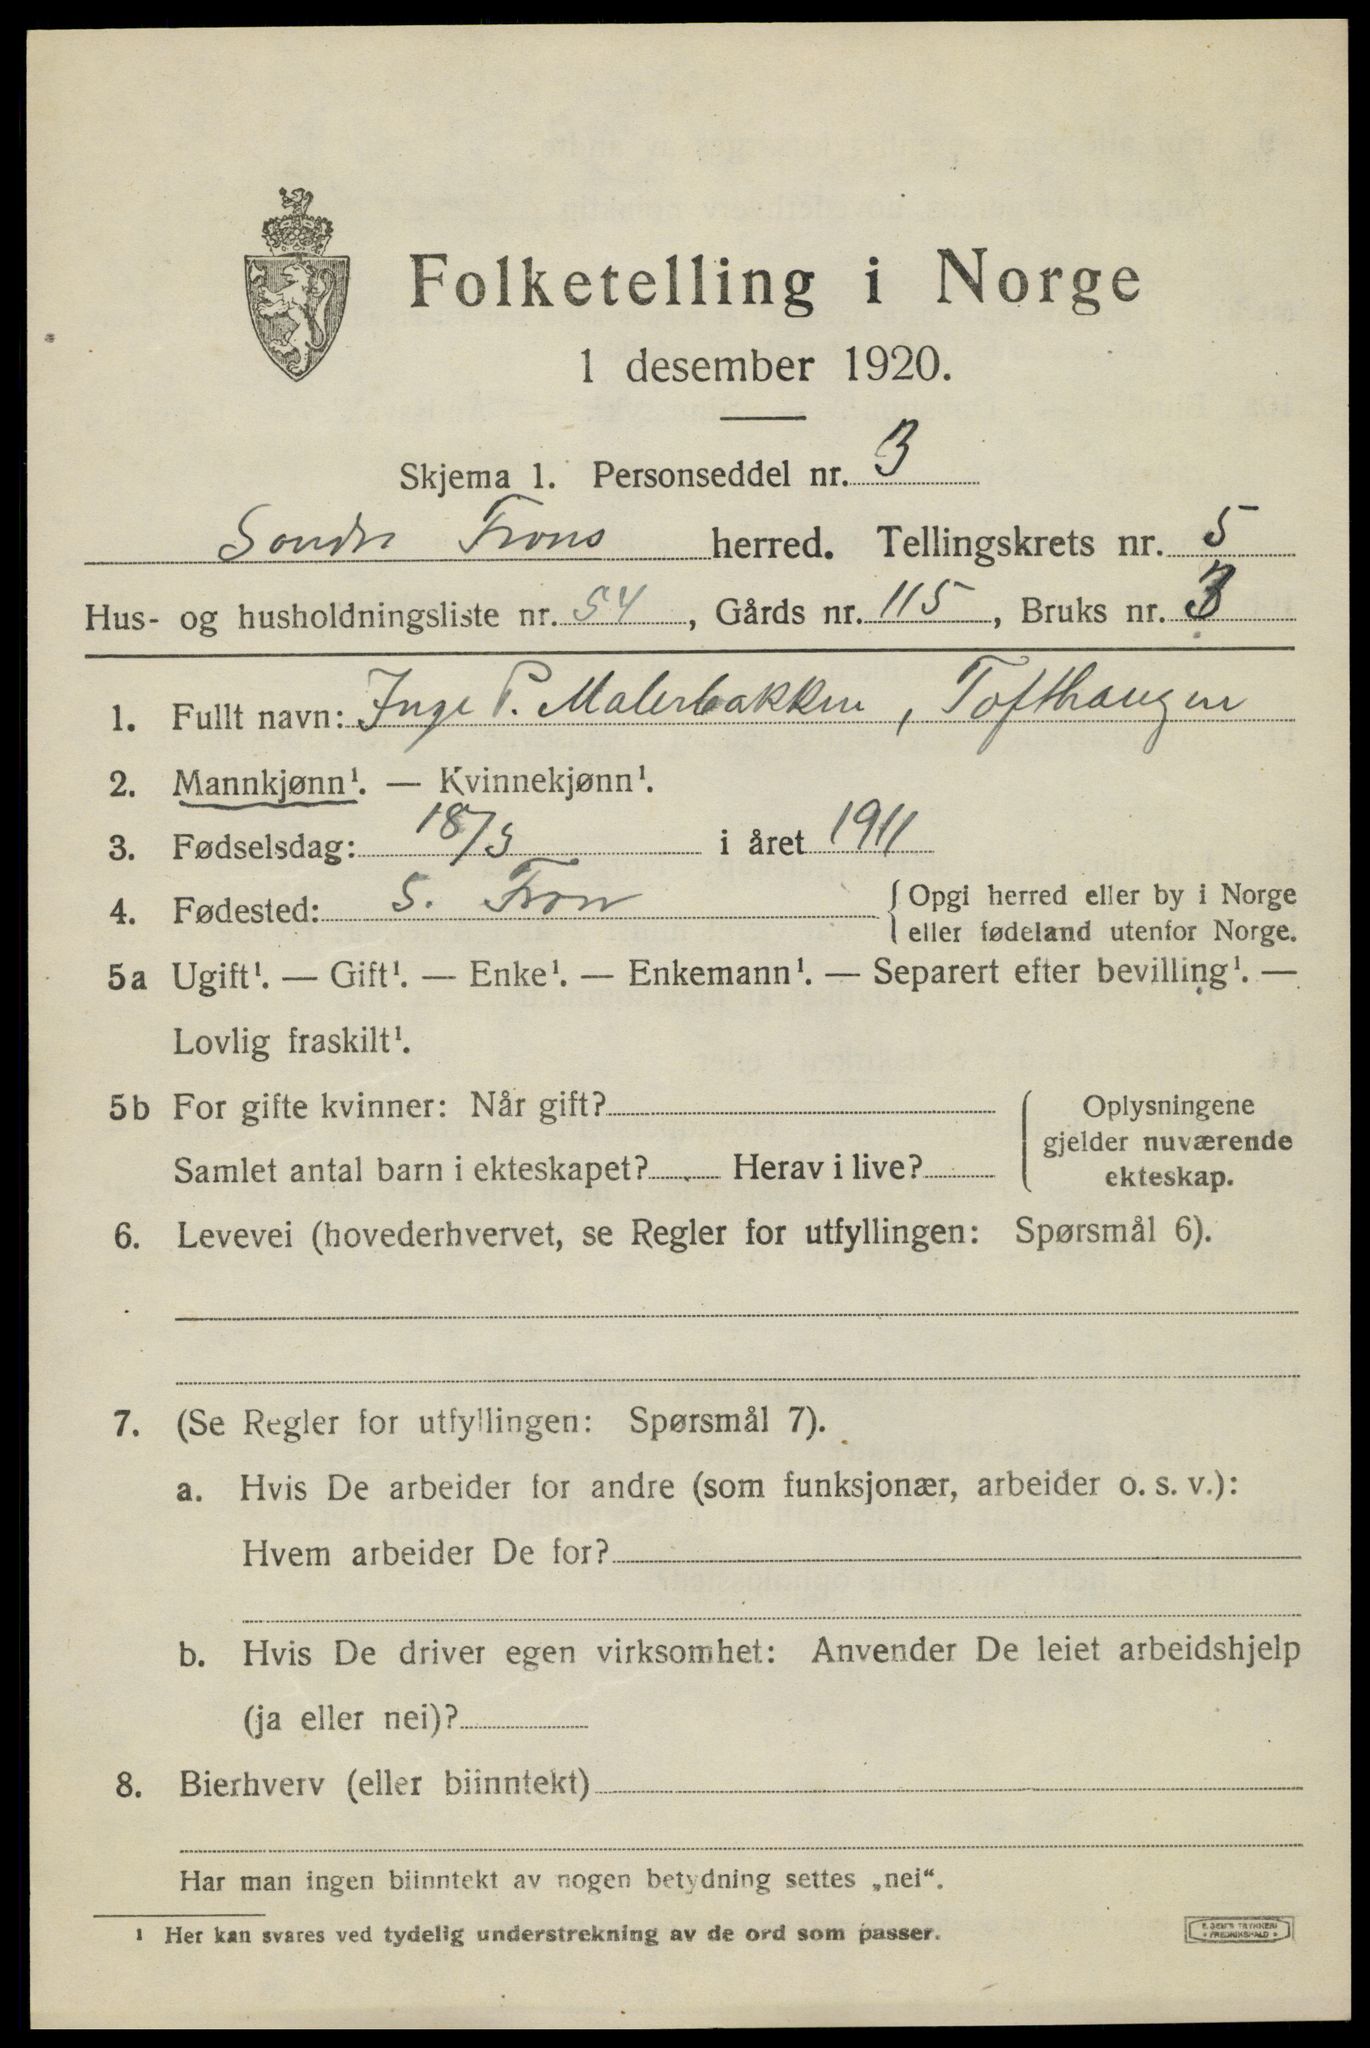 Folketelling i Norge
1 desember 1920.
Skjema 1. Personseddel nr. 3
Søndre Frons herred. Tellingskrets nr. 5
Hus- og husholdningsliste nr. 54, Gårds nr. 115, Bruks nr. 3
1. Fullt navn: Inge P. Malerbakken, Tofthaugen
2. Mannkjønn¹. — Kvinnekjønn¹.
3. Fødselsdag: 18/5 i året 1911
4. Fødested: S. Fron {Opgi herred eller by i Norge
eller fødeland utenfor Norge.
5a Ugift¹. — Gift¹. — Enke¹. — Enkemann¹. — Separert efter bevilling¹. —
Lovlig fraskilt¹.
5b For gifte kvinner: Når gift? Oplysningene
gjelder nuværende
Samlet antal barn i ekteskapet? Herav i live? ekteskap.
6. Levevei (hovederhvervet, se Regler for utfyllingen: Spørsmål 6).
7. (Se Regler for utfyllingen: Spørsmål 7).
a. Hvis De arbeider for andre (som funksjonær, arbeider o. s. v.):
Hvem arbeider De for?
b. Hvis De driver egen virksomhet: Anvender De leiet arbeidshjelp
(ja eller nei)?
8. Bierhverv (eller biinntekt)
Har man ingen biinntekt av nogen betydning settes „nei“.
¹ Her kan svares ved tydelig understrekning av de ord som passer.
E. SEM'S TRYKKERI
• FREDRIKSHALD •